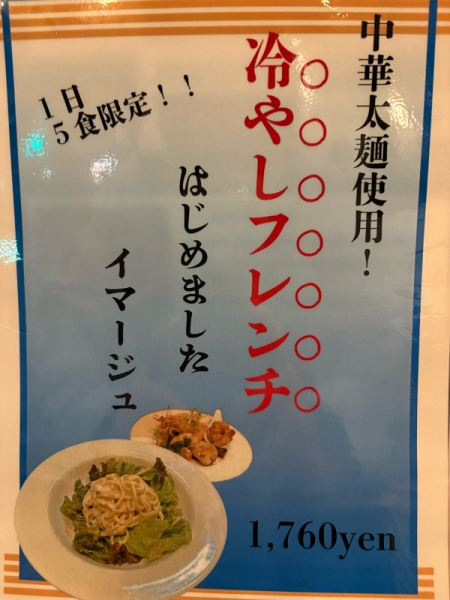 中華太麺使用！
○○○○○○○
冷やしフレンチ
はじめました
イマージュ
1日
5食限定！！
1,760yen